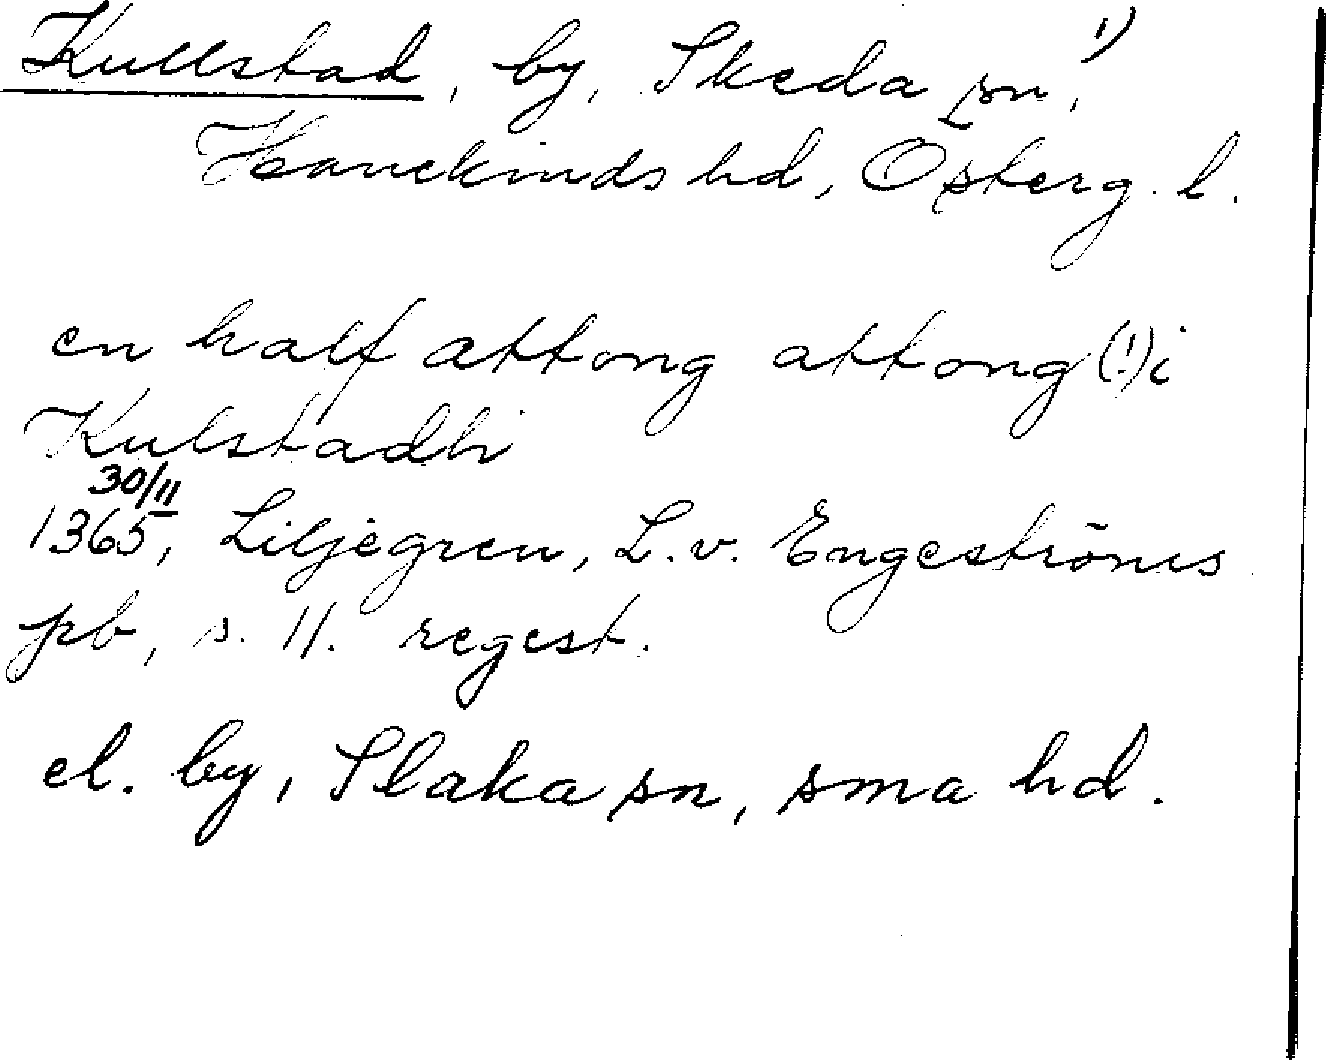 Kullstad, by, Skeda sn, 1)
Hanekinds hd, Österg. l.
en half attong attong (!) i
Kulstadhi
30/11
1365, Liljegren, L. v. Engeströms
pb, s. 11. regest.
el. by, Slaka sn, sma hd.